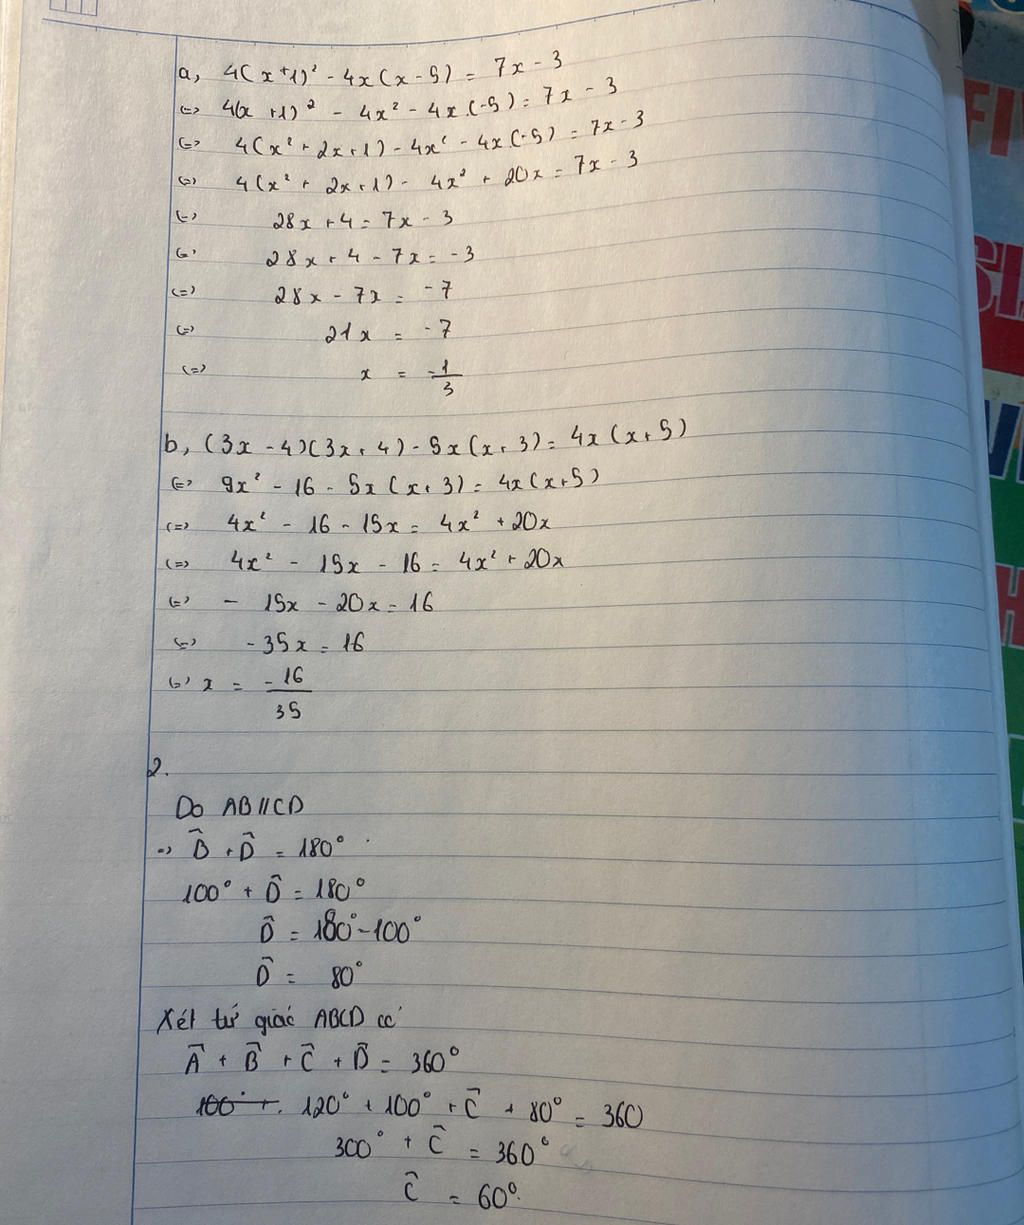 a, 4(x+1)² - 4x(x-5) = 7x - 3
<=> 4(x+1)² - 4x² - 4x.(-5) = 7x - 3
<=> 4(x² + 2x+1) - 4x² - 4x(-5) = 7x - 3
<=> 4(x² + 2x+1) - 4x² + 20x = 7x - 3
<=> 28x + 4 = 7x - 3
<=> 28x + 4 - 7x = -3
<=> 28x - 7x = -7
<=> 21x = -7
<=> x = -1/3
b, (3x-4)(3x+4) - 5x(x+3) = 4x(x+5)
<=> 9x² - 16 - 5x(x+3) = 4x(x+5)
<=> 4x² - 16 - 15x = 4x² + 20x
<=> 4x² - 15x - 16 = 4x² + 20x
<=> - 15x - 20x = 16
<=> -35x = 16
<=> x = -16/35
2.
Do AB//CD
=> B̂ + D̂ = 180°
100° + D̂ = 180°
D̂ = 180° - 100°
D̂ = 80°
Xét tứ giác ABCD có
Â + B̂ + Ĉ + D̂ = 360°
120° + 100° + Ĉ + 80° = 360
300° + Ĉ = 360°
Ĉ = 60°.